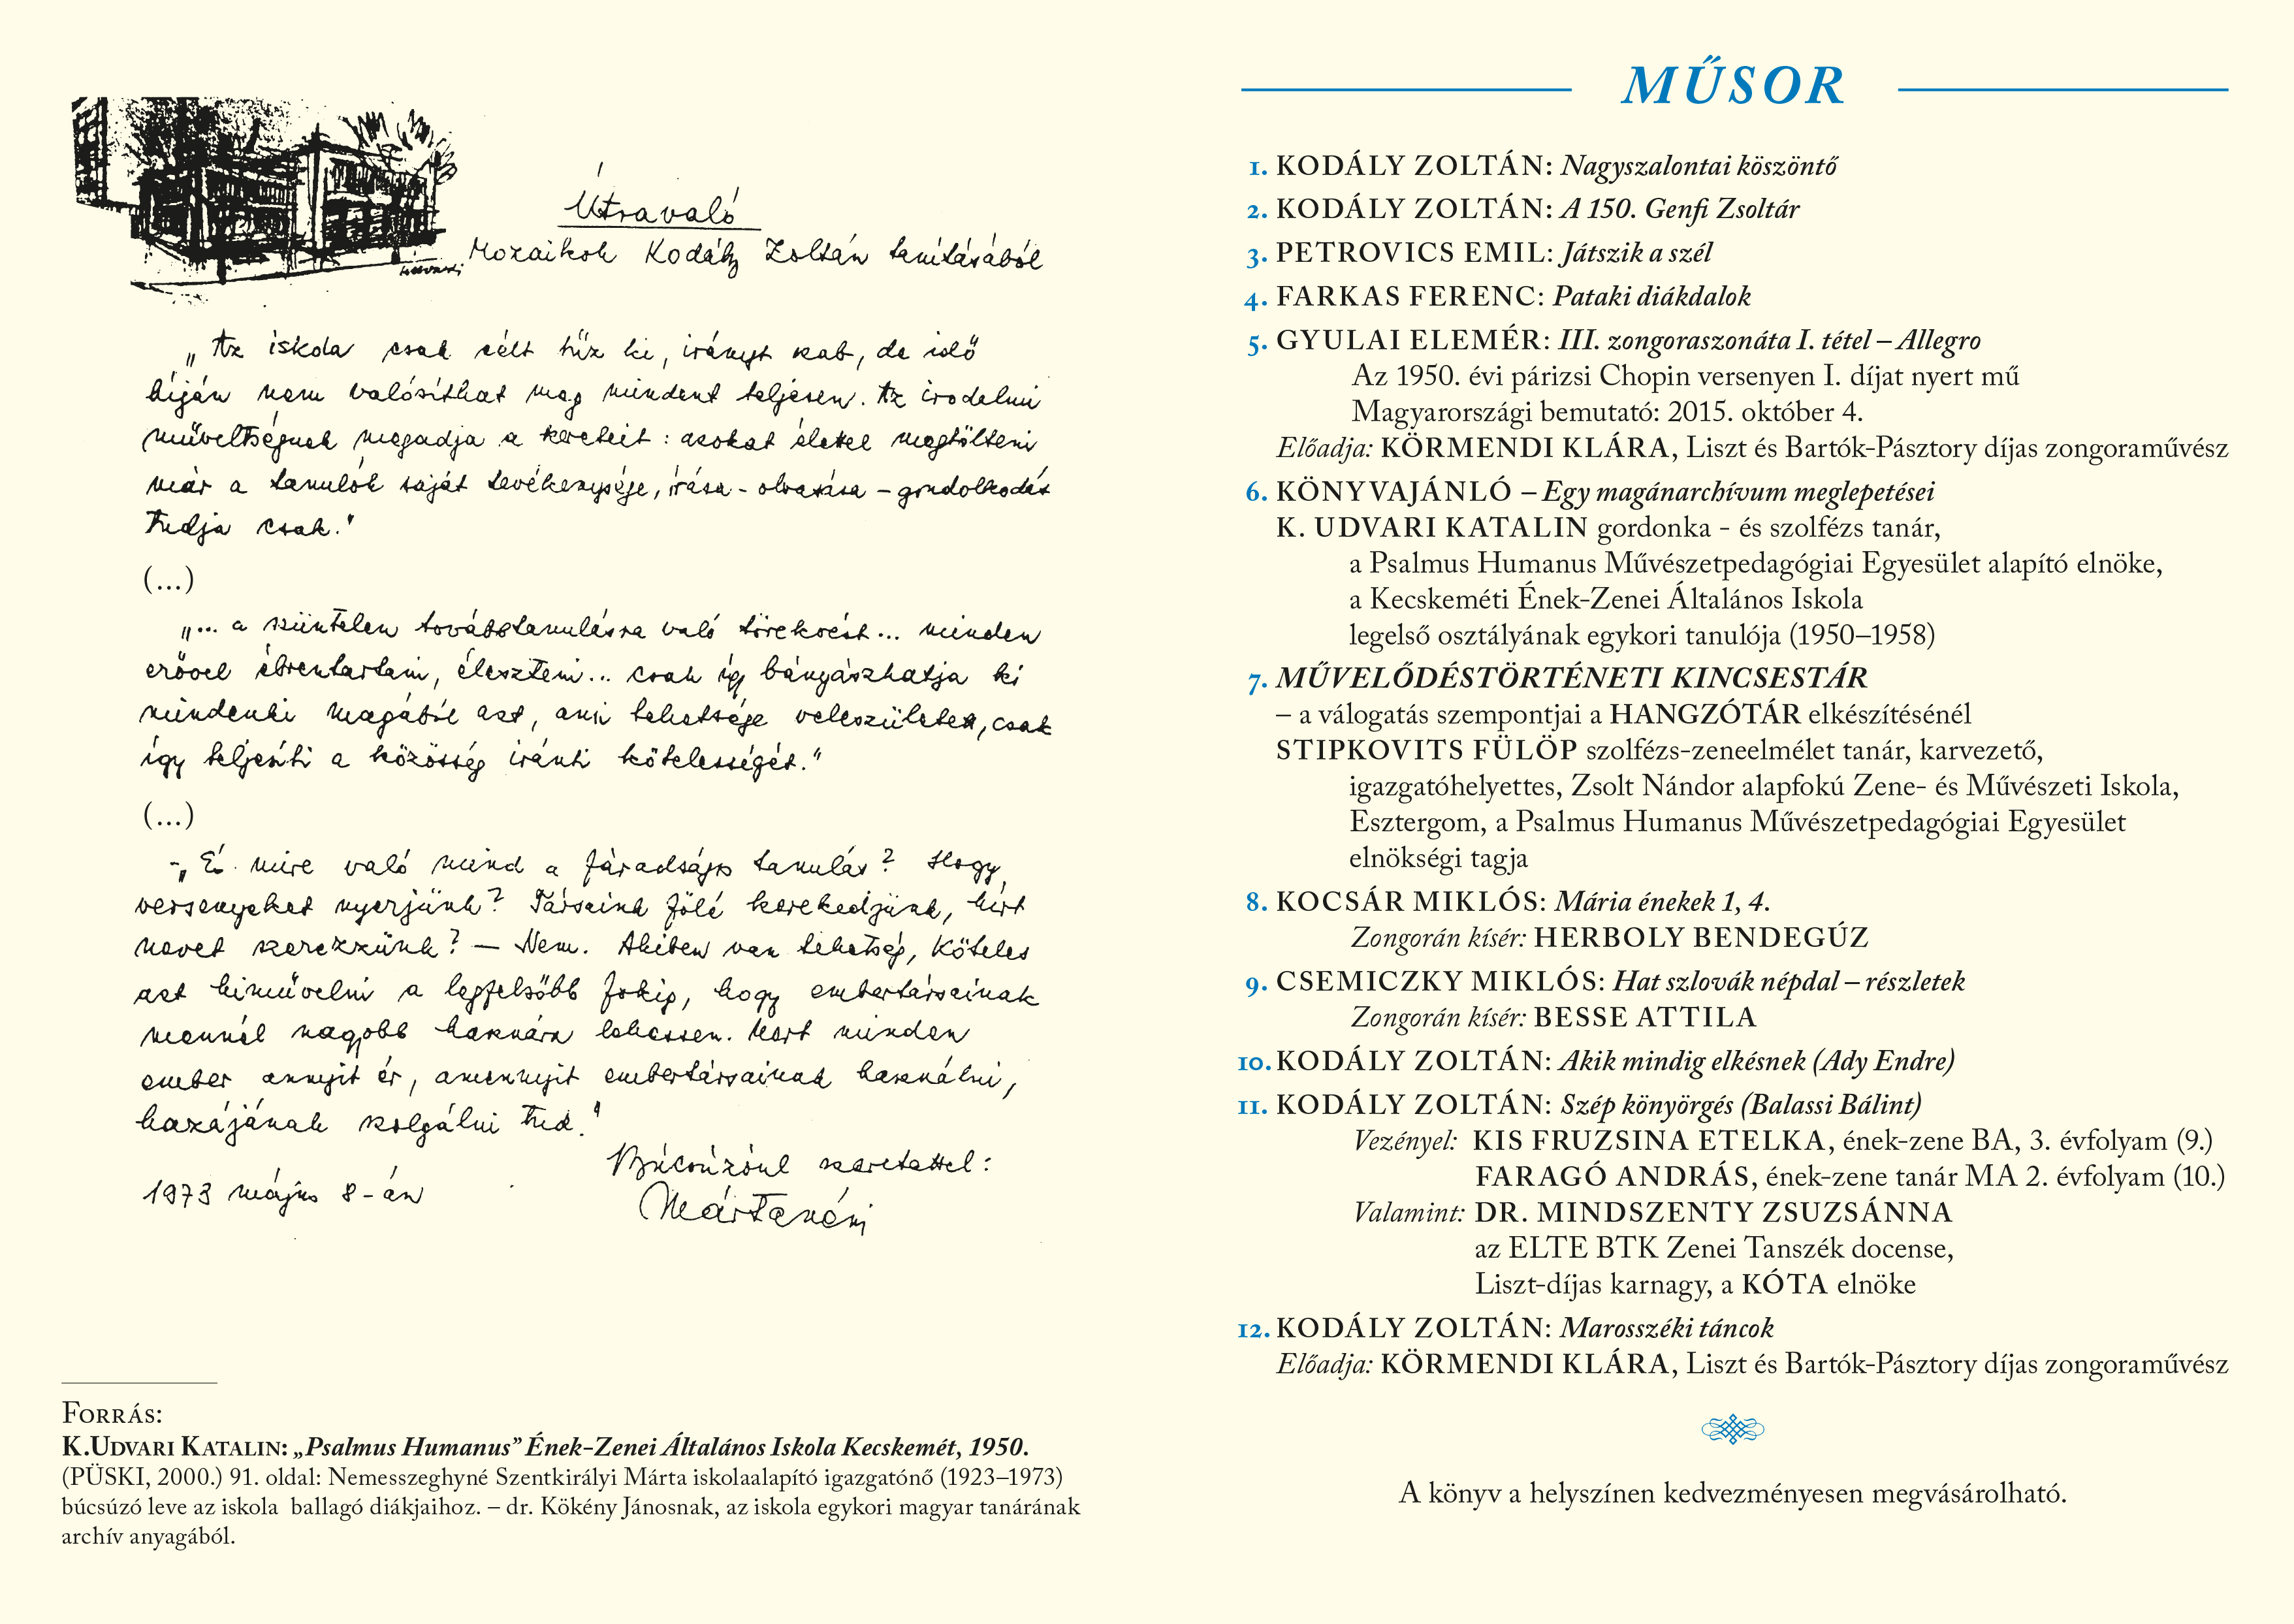 Útravaló
Mozaikok Kodály Zoltán tanításából
„Az iskola csak célt tűz ki, irányt szab, de idő
híján nem valósíthat meg mindent teljesen. Az irodalmi
műveltségnek megadja a kereteit: azokat élettel megtölteni
már a tanulók saját tevékenysége, írása - olvasása - gondolkodás
tudja csak."
(...)
„... a szüntelen továbbtanulásra való törekvést... minden
erővel ébrentartani, éleszteni... csak így bányászhatja ki
mindenki magából azt, ami tehetsége veleszületett, csak
így teljesíti a közösség iránti kötelességét."
(...)
-„És mire való mind a fáradságos tanulás? Hogy
versenyeket nyerjünk? Társaink fölé kerekedjünk, hírt
nevet szerezzünk? — Nem. Akiben van tehetség, köteles
azt kiművelni a legfelsőbb fokig, hogy embertársainak
mennél nagyobb hasznára lehessen. Mert minden
ember annyit ér, amennyit embertársainak használni,
hazájának szolgálni tud."
Búcsúzóul szeretettel:
1973 május 8-án
Márta néni
FORRÁS:
K.UDVARI KATALIN: „Psalmus Humanus” Ének-Zenei Általános Iskola Kecskemét, 1950.
(PÜSKI, 2000.) 91. oldal: Nemesszeghyné Szentkirályi Márta iskolaalapító igazgatónő (1923–1973)
búcsúzó leve az iskola ballagó diákjaihoz. – dr. Kökény Jánosnak, az iskola egykori magyar tanárának
archív anyagából.
MŰSOR
1. KODÁLY ZOLTÁN: Nagyszalontai köszöntő
2. KODÁLY ZOLTÁN: A 150. Genfi Zsoltár
3. PETROVICS EMIL: Játszik a szél
4. FARKAS FERENC: Pataki diákdalok
5. GYULAI ELEMÉR: III. zongoraszonáta I. tétel – Allegro
Az 1950. évi párizsi Chopin versenyen I. díjat nyert mű
Magyarországi bemutató: 2015. október 4.
Előadja: KÖRMENDI KLÁRA, Liszt és Bartók-Pásztory díjas zongoraművész
6. KÖNYVAJÁNLÓ – Egy magánarchívum meglepetései
K. UDVARI KATALIN gordonka - és szolfézs tanár,
a Psalmus Humanus Művészetpedagógiai Egyesület alapító elnöke,
a Kecskeméti Ének-Zenei Általános Iskola
legelső osztályának egykori tanulója (1950–1958)
7. MŰVELŐDÉSTÖRTÉNETI KINCSESTÁR
– a válogatás szempontjai a HANGZÓTÁR elkészítésénél
STIPKOVITS FÜLÖP szolfézs-zeneelmélet tanár, karvezető,
igazgatóhelyettes, Zsolt Nándor alapfokú Zene- és Művészeti Iskola,
Esztergom, a Psalmus Humanus Művészetpedagógiai Egyesület
elnökségi tagja
8. KOCSÁR MIKLÓS: Mária énekek 1, 4.
Zongorán kísér: HERBOLY BENDEGÚZ
9. CSEMICZKY MIKLÓS: Hat szlovák népdal – részletek
Zongorán kísér: BESSE ATTILA
10. KODÁLY ZOLTÁN: Akik mindig elkésnek (Ady Endre)
11. KODÁLY ZOLTÁN: Szép könyörgés (Balassi Bálint)
Vezényel: KIS FRUZSINA ETELKA, ének-zene BA, 3. évfolyam (9.)
FARAGÓ ANDRÁS, ének-zene tanár MA 2. évfolyam (10.)
Valamint: DR. MINDSZENTY ZSUZSÁNNA
az ELTE BTK Zenei Tanszék docense,
Liszt-díjas karnagy, a KÓTA elnöke
12. KODÁLY ZOLTÁN: Marosszéki táncok
Előadja: KÖRMENDI KLÁRA, Liszt és Bartók-Pásztory díjas zongoraművész
A könyv a helyszínen kedvezményesen megvásárolható.